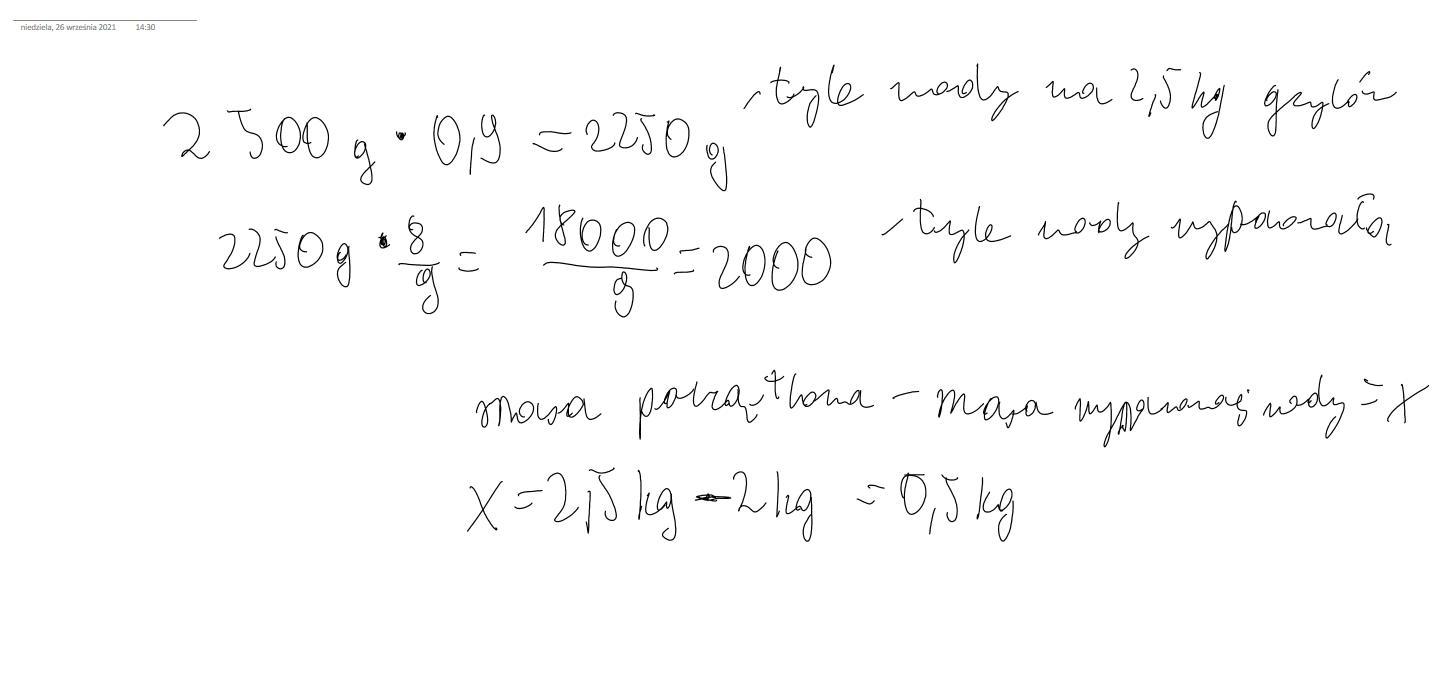 niedziela, 26 września 2021 14:30
2 500 g · 0,9 = 2250 g tyle wody na 2,5 kg grzybów
2250 g · 8/9 = 18000/9 = 2000 tyle wody wyparowało
masa początkowa - masa wyparowanej wody = x
x = 2,5 kg - 2 kg = 0,5 kg